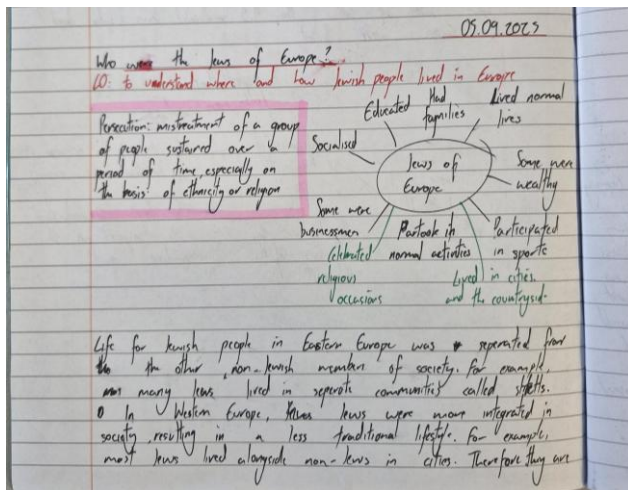 05.09.2025
Who were the Jews of Europe?
LO: to understand where and how Jewish people lived in Europe
Persecution: mistreatment of a group
of people sustained over a
period of time, especially on
the basis of ethnicity or religion
Socialised
Educated
Had
families
Lived normal
lives
Jews of
Europe
Some were
wealthy
Some were
businessmen
Partook in
normal activities
Participated
in sports
Celebrated
religious
occasions
Lived in cities.
and the countryside
Life for Jewish people in Eastern Europe was seperated from
the other, non-Jewish members of society. For example,
many Jews lived in seperate communities called shtetls.
In Western Europe, Jews were more integrated in
society, resulting in a less traditional lifestyle. For example,
most Jews lived alongside non-Jews in cities. Therefore they are